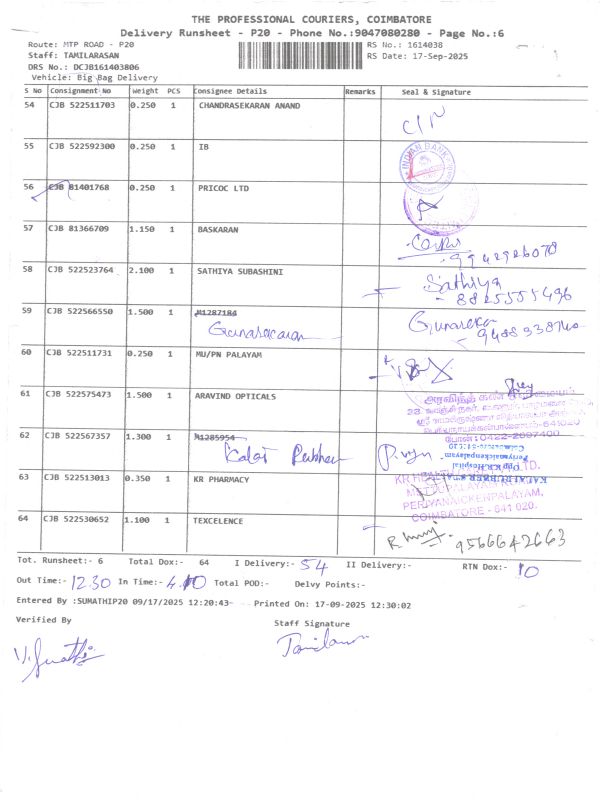 THE PROFESSIONAL COURIERS, COIMBATORE
Delivery Runsheet - P20 - Phone No.:9047080280 - Page No.:6
Route: MTP ROAD - P20
RS No.: 1614038
Staff: TAMILARASAN
RS Date: 17-Sep-2025
DRS No.: DCJB161403806
Vehicle: Big Bag Delivery
S No Consignment No Weight PCS Consignee Details Remarks Seal & Signature
54 CJB 522511703 0.250 1 CHANDRASEKARAN ANAND
55 CJB 522592300 0.250 1 IB
INDIAN BANK
56 CJB 81401768 0.250 1 PRICOC LTD
57 CJB 81366709 1.150 1 BASKARAN
9942926078
58 CJB 522523764 2.100 1 SATHIYA SUBASHINI
Sathiya
8825555496
59 CJB 522566550 1.500 1 M1287184
Gunasekaran
60 CJB 522511731 0.250 1 MU/PN PALAYAM
61 CJB 522575473 1.500 1 ARAVIND OPTICALS
62 CJB 522567357 1.300 1 M1285954
63 CJB 522513013 0.350 1 KR PHARMACY
PERIYANAICKENPALAYAM,
COIMBATORE - 641 020.
64 CJB 522530652 1.100 1 TEXCELENCE
9566642663
Tot. Runsheet:- 6 Total Dox:- 64 I Delivery:- 54 II Delivery:- RTN Dox:- 10
Out Time:- 12.30 In Time:- 4.10 Total POD:- Delvy Points:-
Entered By :SUMATHIP20 09/17/2025 12:20:43- Printed On: 17-09-2025 12:30:02
Verified By
Staff Signature